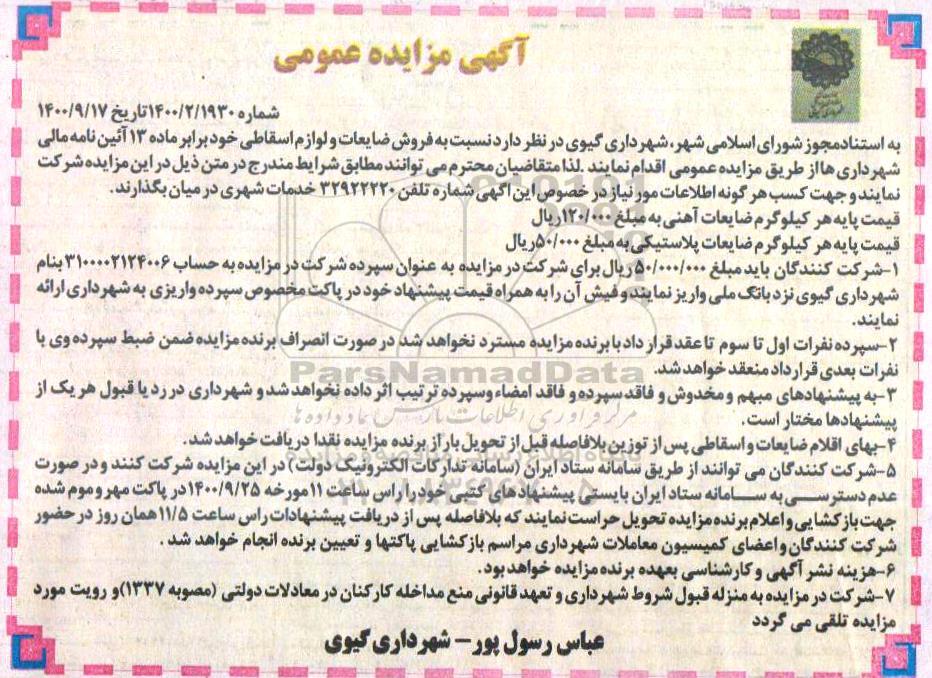 آگهی مزایده عمومی
شماره ۱۴۰۰/۲/۱۹۳۰تاریخ ۱۴۰۰/۹/۱۷
به استنادمجوز شورای اسلامی شهر، شهرداری گیوی در نظر دارد نسبت به فروش ضایعات و لوازم اسقاطی خود برابر ماده ۱۳ آئین نامه مالی
شهرداری ها از طریق مزایده عمومی اقدام نمایند .لذا متقاضیان محترم می توانند مطابق شرایط مندرج در متن ذیل در این مزایده شرکت
نمایند و جهت کسب هر گونه اطلاعات مور نیاز در خصوص این اگهی شماره تلفن ۳۲۹۲۲۲۲۰ خدمات شهری در میان بگذارند.
قیمت پایه هر کیلوگرم ضایعات آهنی به مبلغ ۱۲۰/۰۰۰ریال
قیمت پایه هر کیلوگرم ضایعات پلاستیکی به مبلغ ۵۰/۰۰۰ریال
۱-شرکت کنندگان باید مبلغ ۵۰/۰۰۰/۰۰۰ ریال برای شرکت در مزایده به عنوان سپرده شرکت در مزایده به حساب ۳۱۰۰۰۰۲۱۲۴۰۰۶ بنام
شهرداری گیوی نزد باتک ملی واریز نمایند و فیش آن را به همراه قیمت پیشنهاد خود در پاکت مخصوص سپرده واریزی به شهرداری ارائه
نمایند.
۲-سپرده نفرات اول تا سوم تا عقد قرار داد با برنده مزایده مسترد نخواهد شد در صورت انصراف برنده مزایده ضمن ضبط سپرده وی با
نفرات بعدی قرارداد منعقد خواهد شد.
ParsNamadData
۳-به پیشنهادهای مبهم و مخدوش و فاقد سپرده و فاقد امضاء وسپرده ترتیب اثر داده نخواهد شد و شهرداری در رد یا قبول هر یک از
پیشنهادها مختار است.
۴-بهای اقلام ضایعات و اسقاطی پس از توزین بلافاصله قبل از تحویل بار از برنده مزایده نقدا دریافت خواهد شد.
۵-شرکت کنندگان می توانند از طریق سامانه ستاد ایران (سامانه تدارکات الکترونیک دولت) در این مزایده شرکت کنند و در صورت
عدم دسترسی به سامانه ستاد ایران بایستی پیشنهادهای کتبی خود را راس ساعت ۱۱مورخه ۱۴۰۰/۹/۲۵در پاکت مهر و موم شده
جهت بازکشایی و اعلام برنده مزایده تحویل حراست نمایند که بلافاصله پس از دریافت پیشنهادات راس ساعت ۱۱/۵ همان روز در حضور
شرکت کنندگان و اعضای کمیسیون معاملات شهرداری مراسم بازکشایی پاکتها و تعیین برنده انجام خواهد شد .
۶-هزینه نشر آگهی و کارشناسی بعهده برنده مزایده خواهد بود.
۷-شرکت در مزایده به منزله قبول شروط شهرداری و تعهد قانونی منع مداخله کارکنان در معادلات دولتی (مصوبه ۱۳۳۷)و رویت مورد
مزایده تلقی می گردد
عباس رسول پور- شهرداری گیوی